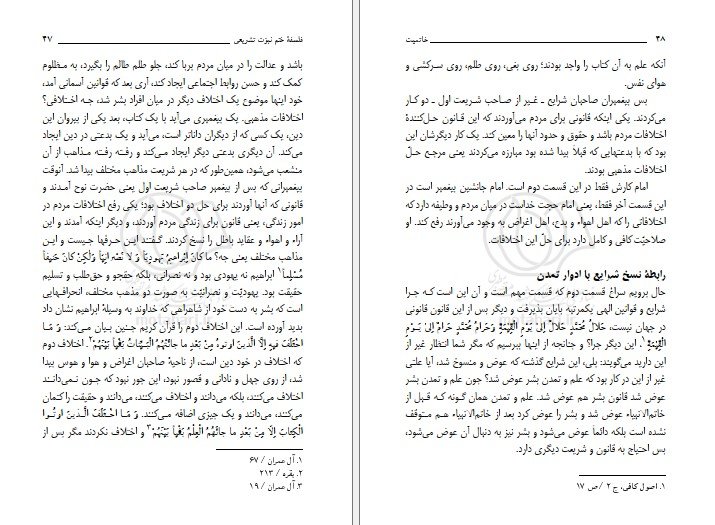 ۴۸ خاتمیت
آنکه علم به آن کتاب را واجد بودند؛ روی بغی، روی ظلم، روی سرکشی و
هوای نفس.
پس پیغمبران صاحبان شرایع ـ غیر از صاحب شریعت اول ـ دو کار
می‌کردند. یکی اینکه قانونی برای مردم می‌آوردند که این قانون حل‌کنندهٔ
اختلافات مردم باشد و حقوق و حدود آنها را معین کند. یک کار دیگرشان این
بود که با بدعتهایی که قبلاً پیدا شده بود مبارزه می‌کردند یعنی مرجع حلّ
اختلافات مذهبی بودند.
امام کارش فقط در این قسمت دوم است. امام جانشین پیغمبر است در
این قسمت آخر فقط، یعنی امام حجت خداست در میان مردم و وظیفه دارد که
اختلافاتی را که اهل اهواء و بدع، اهل اغراض به وجود می‌آورند رفع کند. او
صلاحیّت کافی و کامل دارد برای حلّ این اختلافات.
رابطهٔ نسخ شرایع با ادوار تمدن
حال برویم سراغ قسمت دوم که قسمت مهم است و آن این است که چرا
شرایع و قوانین الهی یکمرتبه پایان پذیرفت و دیگر پس از این قانون قانونی
در جهان نیست، حَلالُ مُحَمَّدٍ حَلالٌ اِلیٰ یَوْمِ الْقِیٰمَةِ وَ حَرامُ مُحَمَّدٍ حَرامٌ اِلیٰ یَوْمِ
الْقِیٰمَةِ ۱. این دیگر چرا؟ و چنانچه از اینها بپرسیم که مگر شما انتظار غیر از
این دارید می‌گویند: بلی، این شرایع گذشته که عوض و منسوخ شد، آیا علتی
غیر از این در کار بود که علم و تمدن بشر عوض شد؟ چون علم و تمدن بشر
عوض شد قانون بشر هم عوض شد. علم و تمدن همان گونه که قبل از
خاتم‌الانبیاء عوض شد و بشر را عوض کرد بعد از خاتم‌الانبیاء هم متوقف
نشده است بلکه دائماً عوض می‌شود و بشر نیز به دنبال آن عوض می‌شود،
پس احتیاج به قانون و شریعت دیگری دارد.
۱. اصول کافی، ج ۲ / ص ۱۷
فلسفهٔ ختم نبوّت تشریعی ۴۷
باشد و عدالت را در میان مردم برپا کند، جلو ظلم ظالم را بگیرد، به مظلوم
کمک کند و حسن روابط اجتماعی ایجاد کند، آری بعد که قوانین آسمانی آمد،
خود اینها موضوع یک اختلاف دیگر در میان افراد بشر شد، چه اختلافی؟
اختلافات مذهبی. یک پیغمبری می‌آید با یک کتاب، بعد یکی از پیروان این
دین، یک کسی که از دیگران داناتر است، می‌آید و یک بدعتی در دین ایجاد
می‌کند. آن دیگری بدعتی دیگر ایجاد می‌کند و رفته رفته مذاهب از آن
منشعب می‌شود، همین‌طور که در هر شریعت مذاهب مختلف پیدا شد. آنوقت
پیغمبرانی که پس از پیغمبر صاحب شریعت اول یعنی حضرت نوح آمدند و
قانونی که آنها آوردند برای حل دو اختلاف بود؛ یکی رفع اختلافات مردم در
امور زندگی، یعنی قانون برای زندگی مردم آوردند، و دیگر اینکه آمدند و این
آراء و اهواء و عقاید باطل را نسخ کردند. گفتند این حرفها چیست و این
مذاهب مختلف یعنی چه؟ ما کانَ اِبْراهیمُ یَهودِیّاً وَ لا نَصْرانِیّاً وَلٰکِنْ کانَ حَنیفاً
مُسْلِماً ۱ ابراهیم نه یهودی بود و نه نصرانی، بلکه حقجو و حق‌طلب و تسلیم
حقیقت بود. یهودیّت و نصرانیّت به صورت دو مذهب مختلف، انحرافهایی
است که بشر به دست خود از شاهراهی که خداوند به وسیلهٔ ابراهیم نشان داد
پدید آورده است. این اختلاف دوم را قرآن کریم چنین بیان می‌کند: وَ مَا
اخْتَلَفَ فیهِ اِلَّا الَّذینَ اوتوهُ مِنْ بَعْدِ ما جائَتْهُمُ الْبَیِّناتُ بَغْیاً بَیْنَهُمْ ۲. اختلاف دوم
که اختلاف در خود دین است، از ناحیهٔ صاحبان اغراض و هوا و هوس پیدا
شد، از روی جهل و نادانی و قصور نبود، این جور نبود که چون نمی‌دانند
اختلاف می‌کنند، بلکه می‌دانند و اختلاف می‌کنند، می‌دانند و حقیقت را کتمان
می‌کنند، می‌دانند و یک چیزی اضافه می‌کنند. وَ مَا اخْتَلَفَ الَّذینَ اوتُوا
الْکِتابَ اِلّا مِنْ بَعْدِ ما جائَهُمُ الْعِلْمُ بَغْیاً بَیْنَهُمْ ۳ و اختلاف نکردند مگر پس از
۱. آل عمران / ۶۷
۲. بقره / ۲۱۳
۳. آل عمران / ۱۹